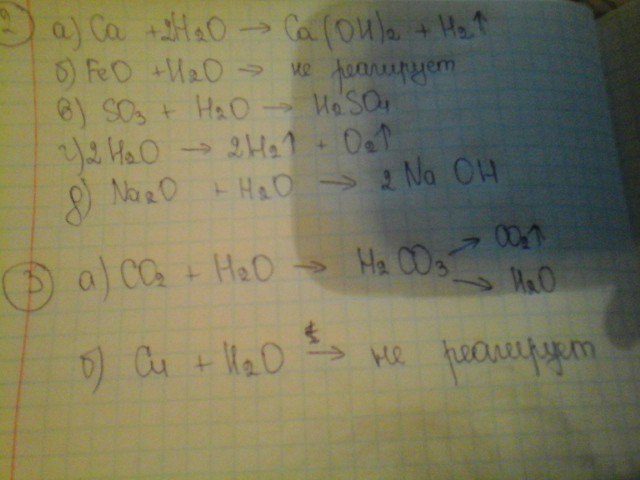 2 а) Ca + 2H2O → Ca(OH)2 + H2↑
б) FeO + H2O → не реагирует
в) SO3 + H2O → H2SO4
г) 2H2O → 2H2↑ + O2↑
д) Na2O + H2O → 2NaOH
3 а) CO2 + H2O → H2CO3 ↗ CO2↑
↘ H2O
б) Cu + H2O t→ не реагирует